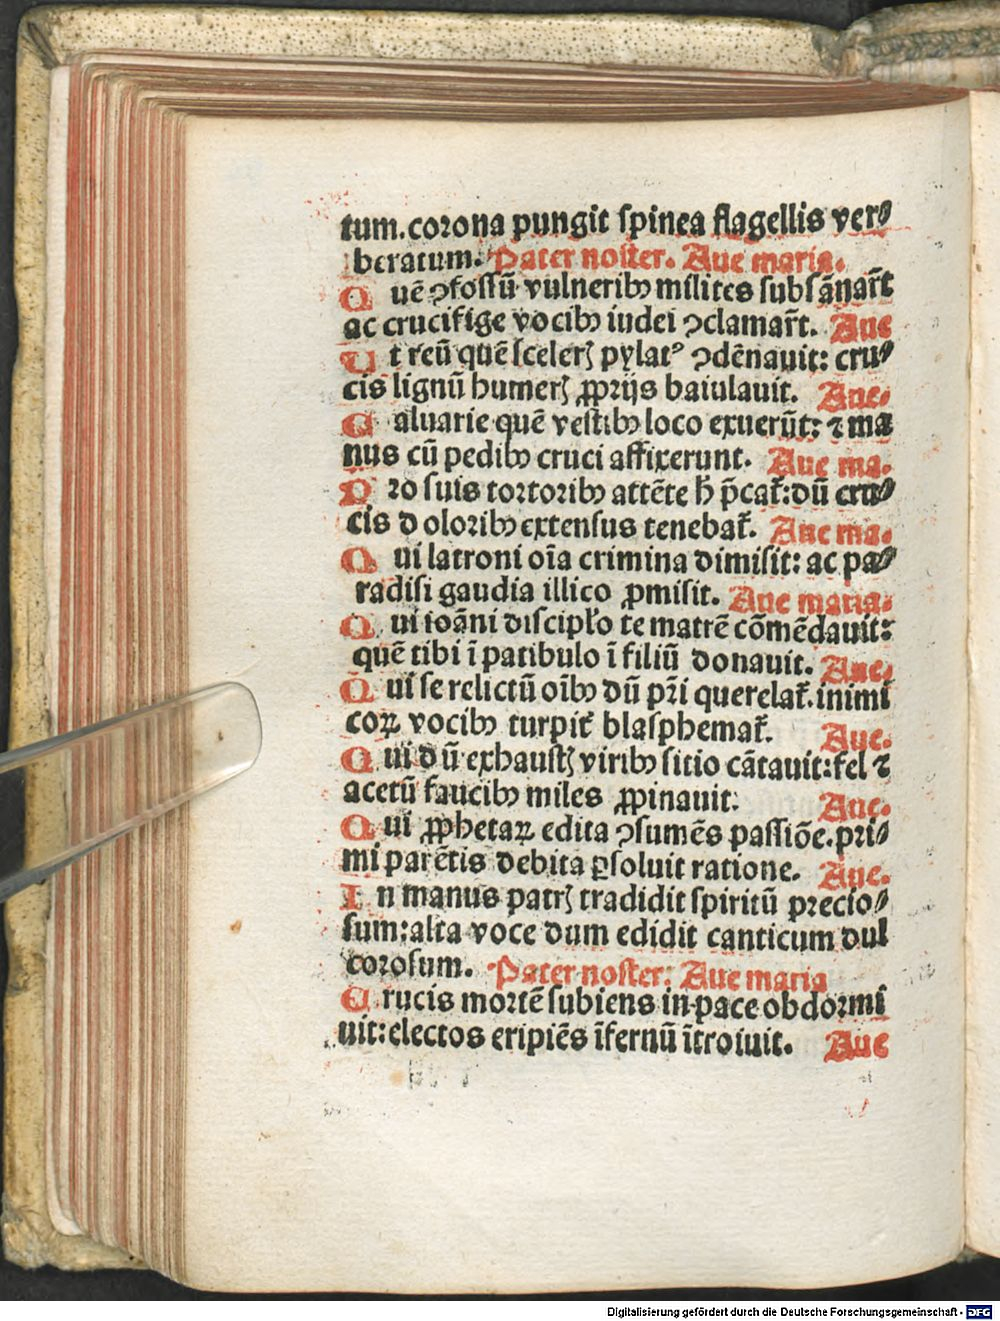 tum.corona pungit spinea flagellis ver⸗
beratum. Pater noster. Aue maria.
Quē ꝯfossū vulneribꝫ milites subsānar̄t
ac crucifige vocibꝫ iudei ꝯclamar̄t. Aue
Ut reū quē scelerꝭ pylatꝰ ꝯdēnauit: cru⸗
cis lignū humerꝭ ꝓprijs baiulauit. Aue.
Caluarie quē vestibꝫ loco exuerūt: ⁊ ma
nus cū pedibꝫ cruci affixerunt. Aue ma.
Pro suis tortoribꝫ attēte h̄ p̄cat᷑: dū cru⸗
cis doloribꝫ extensus tenebat᷑. Aue ma.
Qui latroni oīa crimina dimisit: ac pa⸗
radisi gaudia illico ꝓmisit. Aue maria.
Qui ioāni discipl̓o te matrē cōmēdauit:
quē tibi ī patibulo ī filiū donauit. Aue.
Qui se relictū oībꝫ dū pr̄i querelat᷑. inimi
coꝝ vocibꝫ turpit᷑ blasphemat᷑. Aue.
Qui dū exhaustꝭ viribꝫ sitio cātauit: fel ⁊
acetū faucibꝫ miles ꝓpinauit. Aue.
Qui ꝓphetaꝝ edita ꝯsumēs passiōe. pri⸗
mi parētis debita ꝑsoluit ratione. Aue.
In manus patrꝭ tradidit spiritū precio⸗
sum: alta voce dum edidit canticum dul
corosum. Pater noster: Aue maria
Crucis mortē subiens in pace obdormi
uit: electos eripiēs īfernū ītroiuit. Aue
Digitalisierung gefördert durch die Deutsche Forschungsgemeinschaft - DFG